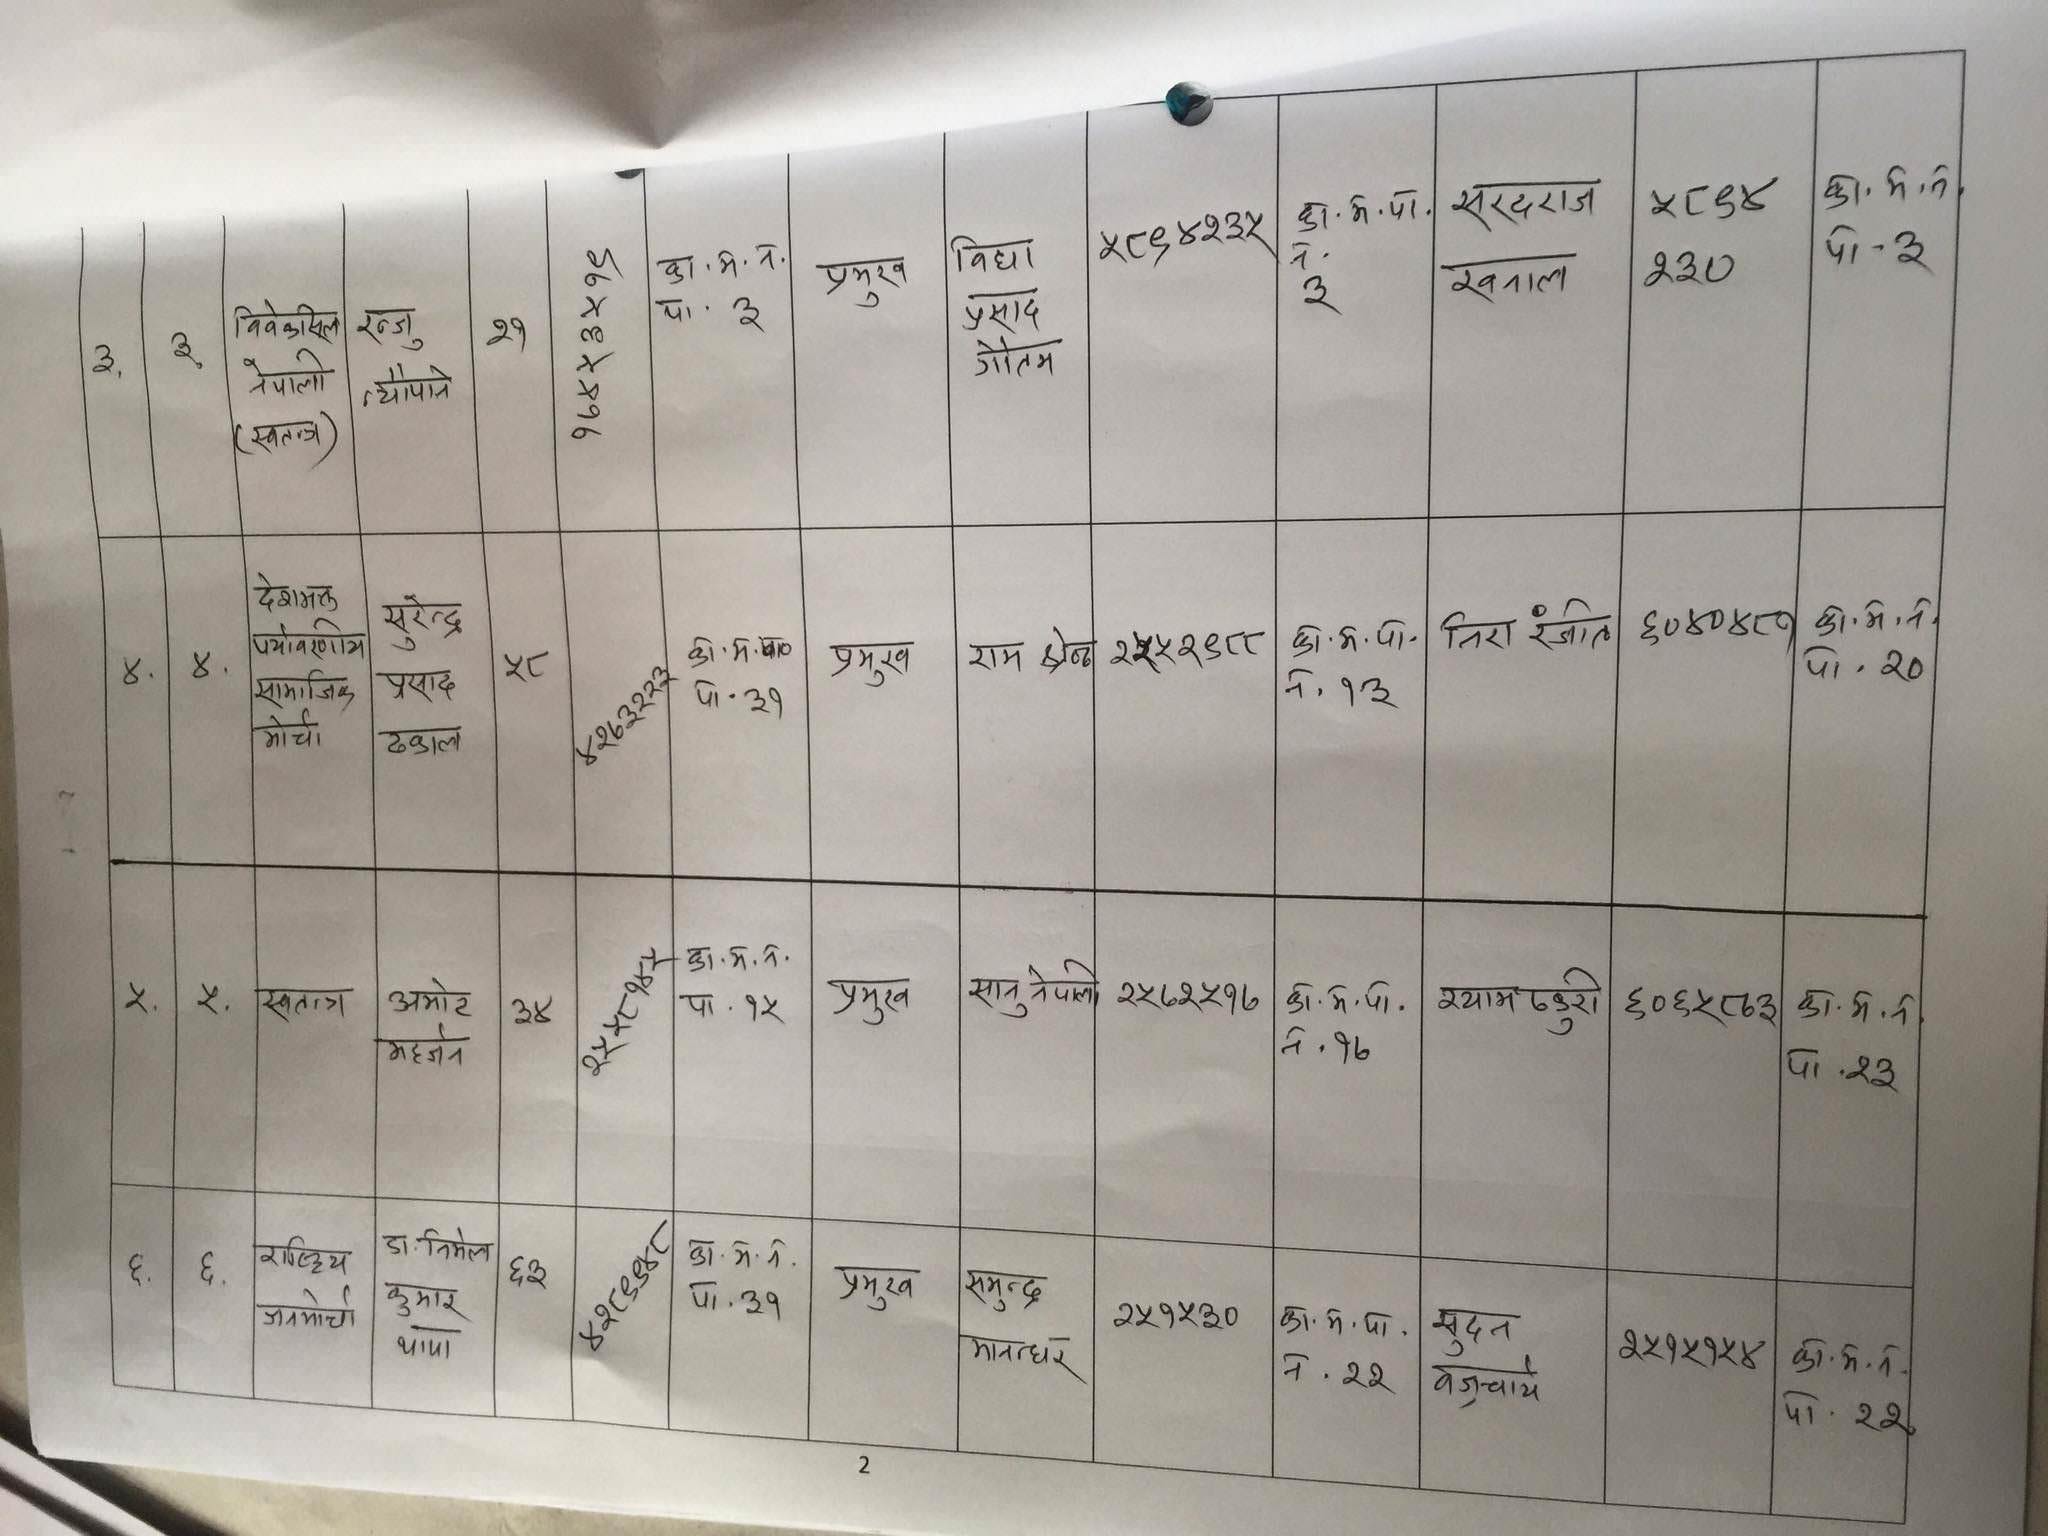 ३.
३
विवेकसिल
नेपाली
(स्वतन्त्र)
रन्जु
न्यौपाने
२१
का.म.न.
पा. ३
प्रमुख
विद्या
प्रसाद
गौतम
५८९४२३५
का.म.पा.
न.
३
सरदराज
खनाल
५८९४
२३०
का.म.न.
पा-३
४.
४.
देशभक्त
पर्यावरणीय
सामाजिक
मोर्चा
सुरेन्द्र
प्रसाद
ढकाल
५८
४२७३२२३
पा.३१
प्रमुख
राम
का.म.पा.
न.१३
६०४०४८१
का.म.न.
पा.२०
५.
५.
स्वतन्त्र
महर्जन
३४
२५५८१४५
का.म.न.
पा.१५
प्रमुख
सानु नेपाली
२५७२५१७
का.म.पा.
न.१७
श्याम
६०६५८७३
का.म.न.
पा.२३
६.
६.
राष्ट्रिय
जनमोर्चा
डा.निर्मल
कुमार
थापा
६३
४२८९९४८
का.म.न.
पा.३१
प्रमुख
समुन्द्र
मानन्धर
२५१५३०
का.म.पा.
न.२२
सुदन
बज्रचार्य
२५१५१५४
का.म.न.
पा.२२
2